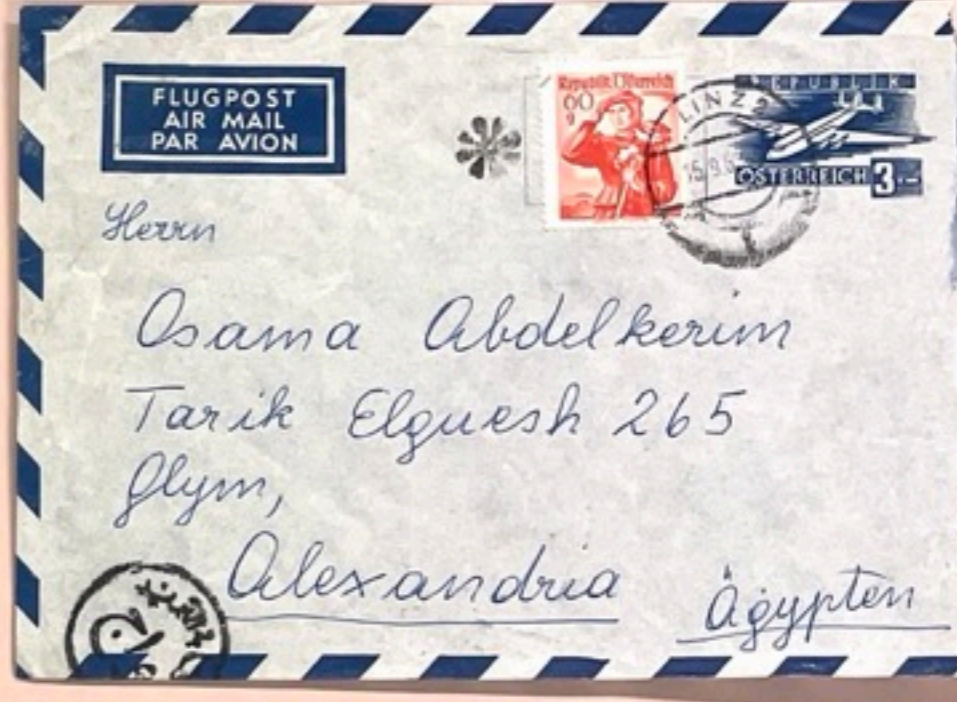 FLUGPOST
AIR MAIL
PAR AVION
Republik Österreich
60
g
LINZ 2
REPUBLIK
ÖSTERREICH 3.-
Herrn
Osama Abdelkerim
Tarik Elguesh 265
Glym,
Alexandria Ägypten